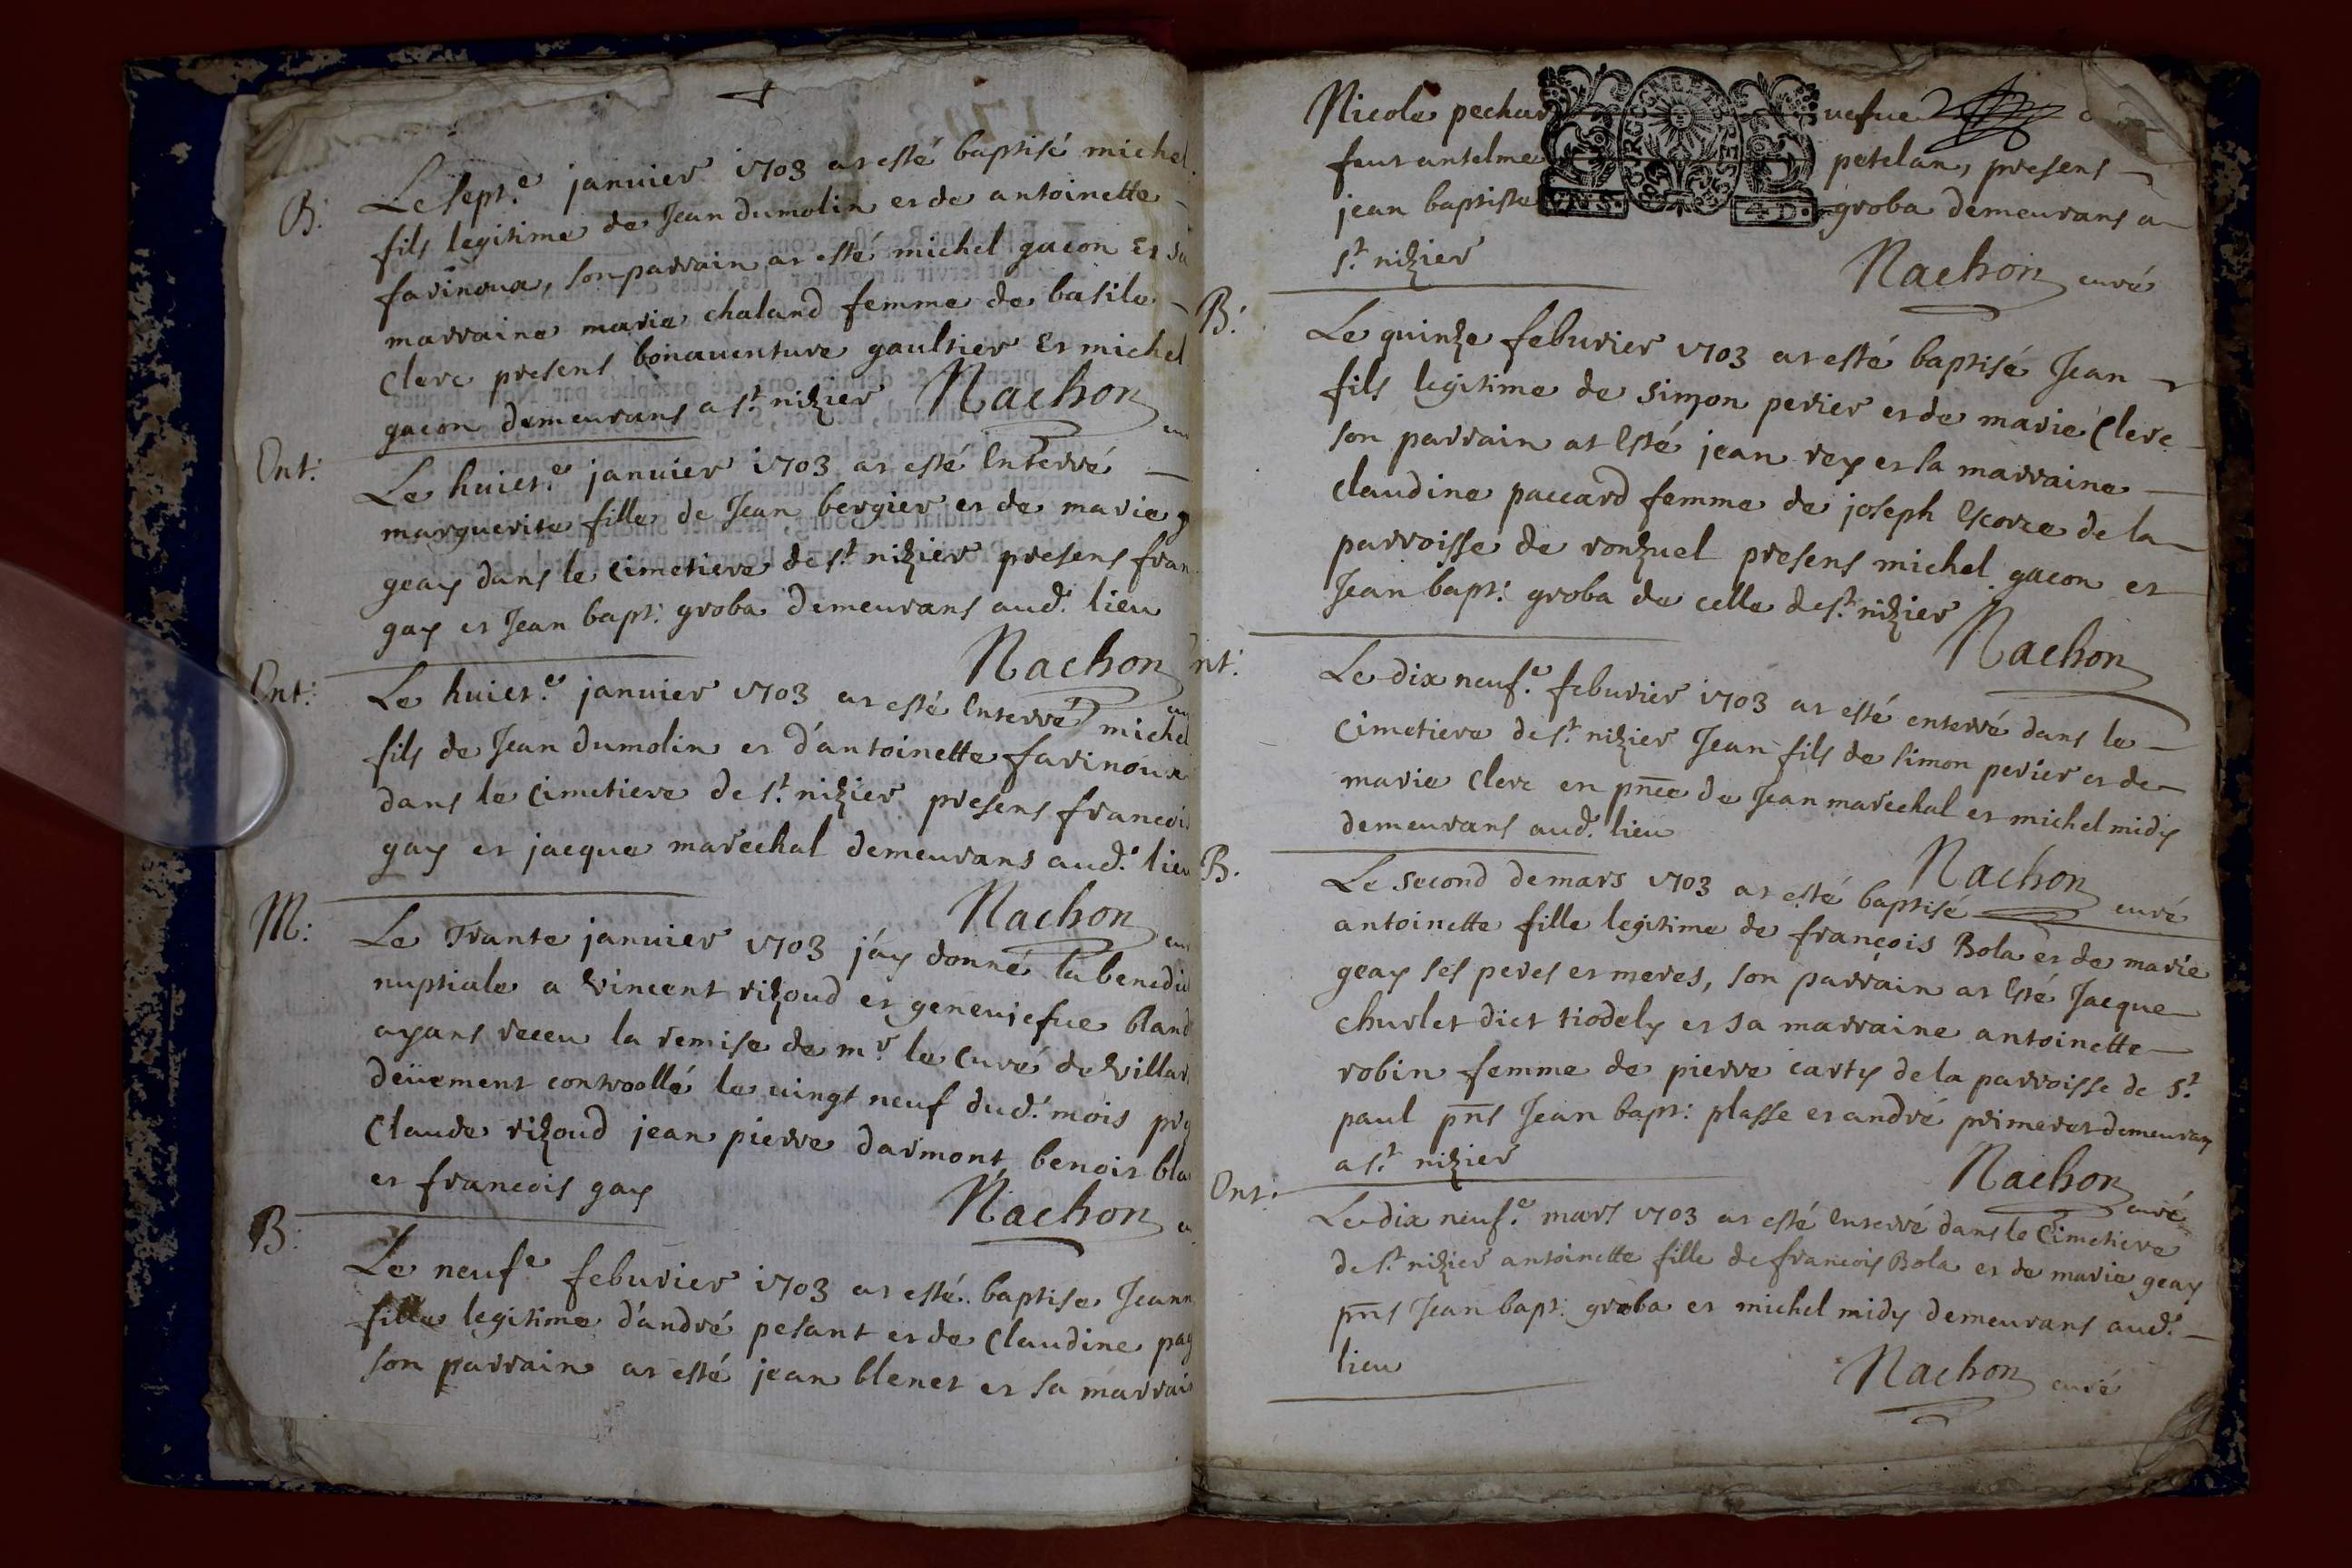 B: Le sept.e janvier 1703 at esté baptisé michel
fils legitime de Jean dumolin et de antoinette
farinoux, son parrain at esté michel gacon Et sa
marraine marie chaland femme de basile
Clerc presens bonaventure gaultier Et michel
gacon demeurans a st. nizier Nachon
Ent: Le huict.e janvier 1703 at esté Enterré
marguerite fille de Jean bergier et de marie
geay dans le Cimetiere de st. nizier presens fran
gay et Jean bapt: groba demeurans aud. lieu
Nachon
Ent: Le huict.e janvier 1703 at esté Enterré michel
fils de Jean dumolin et d'antoinette farinoux
dans le Cimetiere de st. nizier presens francois
gay et jacque marechal demeurans aud. lieu
Nachon
M: Le Trante janvier 1703 j'ay donné la benedic
nuptiale a Vincent rizoud et geneuiefue bland
ayant receu la remise de mr. le Curé de Villar
deüement controollé le vingt neuf dud. mois
Claude rizoud jean pierre darmont benoit bla
et francois gay
Nachon
B: Le neuf.e feburier 1703 at esté baptise Jeann
fille legitime d'andré pesant et de Claudine pag
son parrain at esté jean blenet et sa marrai
Nicole pechar uefue
feut antelme petelan, presens
jean baptiste groba demeurans a
st. nizier
VN S. 4 D.
Nachon curé
B: Le quinze feburier 1703 at esté baptisé Jean
fils legitime de simon perier et de marie Clerc
son parrain at Esté jean rey et sa marraine
Claudine paccard femme de joseph Escorce de la
parroisse de ronzuel presens michel gacon et
Jean bapt: groba de celle de st. nizier
Nachon
nt: Le dix neuf.e feburier 1703 at esté enterré dans le
Cimetiere de st. nizier Jean fils de simon perier et de
marie Clerc en pnce de Jean marechal et michel midy
demeurans aud. lieu
Nachon curé
B. Le second de mars 1703 at esté baptisé
antoinette fille legitime de françois Bola et de marie
geay ses peres et meres, son parrain at Esté Jacque
churlet dict tiodely et sa marraine antoinette
robin femme de pierre carty de la parroisse de st.
paul pns Jean bapt: plasse et andré primeret demeurans
a st. nizier
Nachon curé
Ent: Le dix neuf.e mars 1703 at esté Enterré dans le Cimetiere
de st. nizier antoinette fille de francois Bola et de marie geay
pns Jean bapt: groba et michel midy demeurans aud.
lieu
Nachon curé